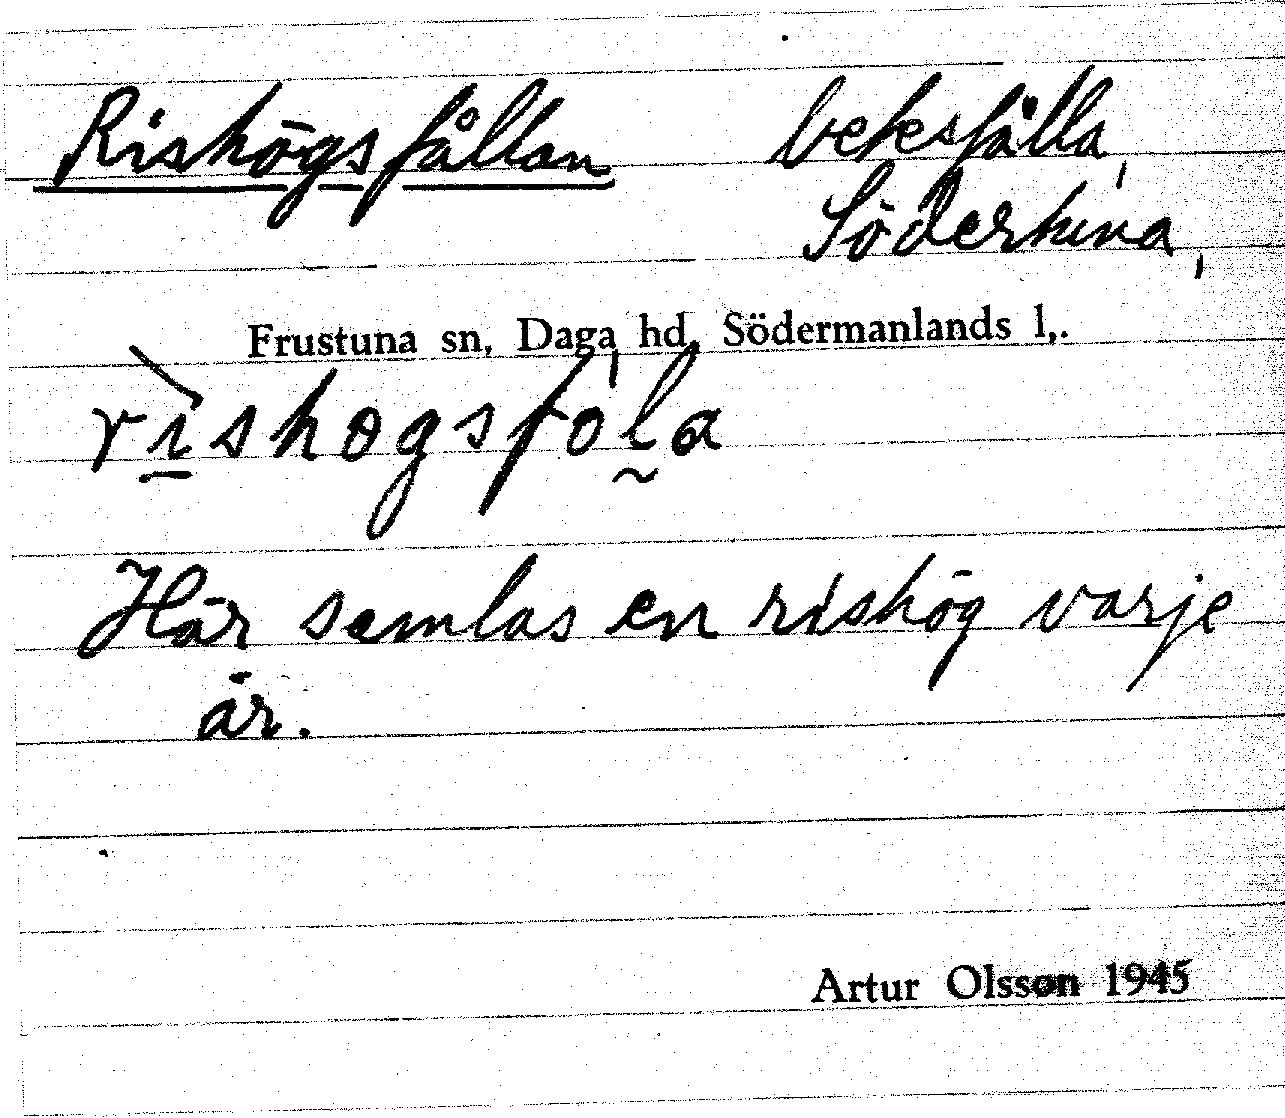 Rishögsfållan betesfålla,
Söderhina,
Frustuna sn, Daga hd, Södermanlands l,.
rìshogsfo̍la
Här samlas en rishög varje
år.
Artur Olsson 1945